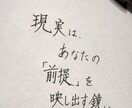 現実は、
あなたの
「前提」を
映し出す鏡